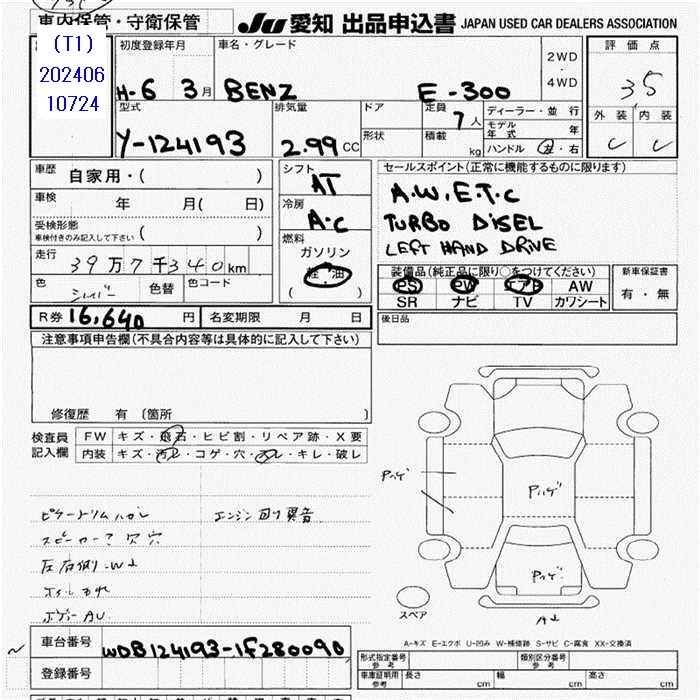 車内保管・守衛保管
JU 愛知 出品申込書 JAPAN USED CAR DEALERS ASSOCIATION
(T1)
202406
10724
初度登録年月
H-6 3月
車名・グレード
BENZ E-300
2WD
・
4WD
評価点
35
外装 内装
C C
型式
Y-124193
排気量
2.99 CC
ドア
形状
定員
7人
積載 kg
ディーラー・並行
モデル年式 年
ハンドル 左・右
車歴 自家用・( )
車検 年 月( 日)
受検形態
車検付きのみ記入して下さい ( )
走行 39万7千340km
色 シルバー 色替 色コード
シフト
AT
冷房
A・C
燃料
ガソリン
軽・油
( )
セールスポイント(正常に機能するものに限ります)
A.W.E.T.C
TURBO DISEL
LEFT HAND DRIVE
装備品(純正品に限り○をつけてください)
PS PW エアB AW
SR ナビ TV カワシート
新車保証書
有・無
R券 16,640 円 名変期限 月 日
後日品
注意事項申告欄(不具合内容等は具体的に記入して下さい)
修復歴 有 〔箇所 〕
検査員
記入欄
FW キズ・飛石・ヒビ割・リペア跡・X要
内装 キズ・汚レ・コゲ・穴・スレ・キレ・破レ
エンジン回り異音
Pハゲ
Pハゲ
Pハゲ
スペア
A-キズ E-エクボ U-凹み W-補修跡 S-サビ C-腐食 XX-交換済
車台番号 WDB124193-1F280090
登録番号
形式指定番号
参考
類別区分番号
参考
車庫証明用
参考
長さ cm 幅 cm 高さ cm